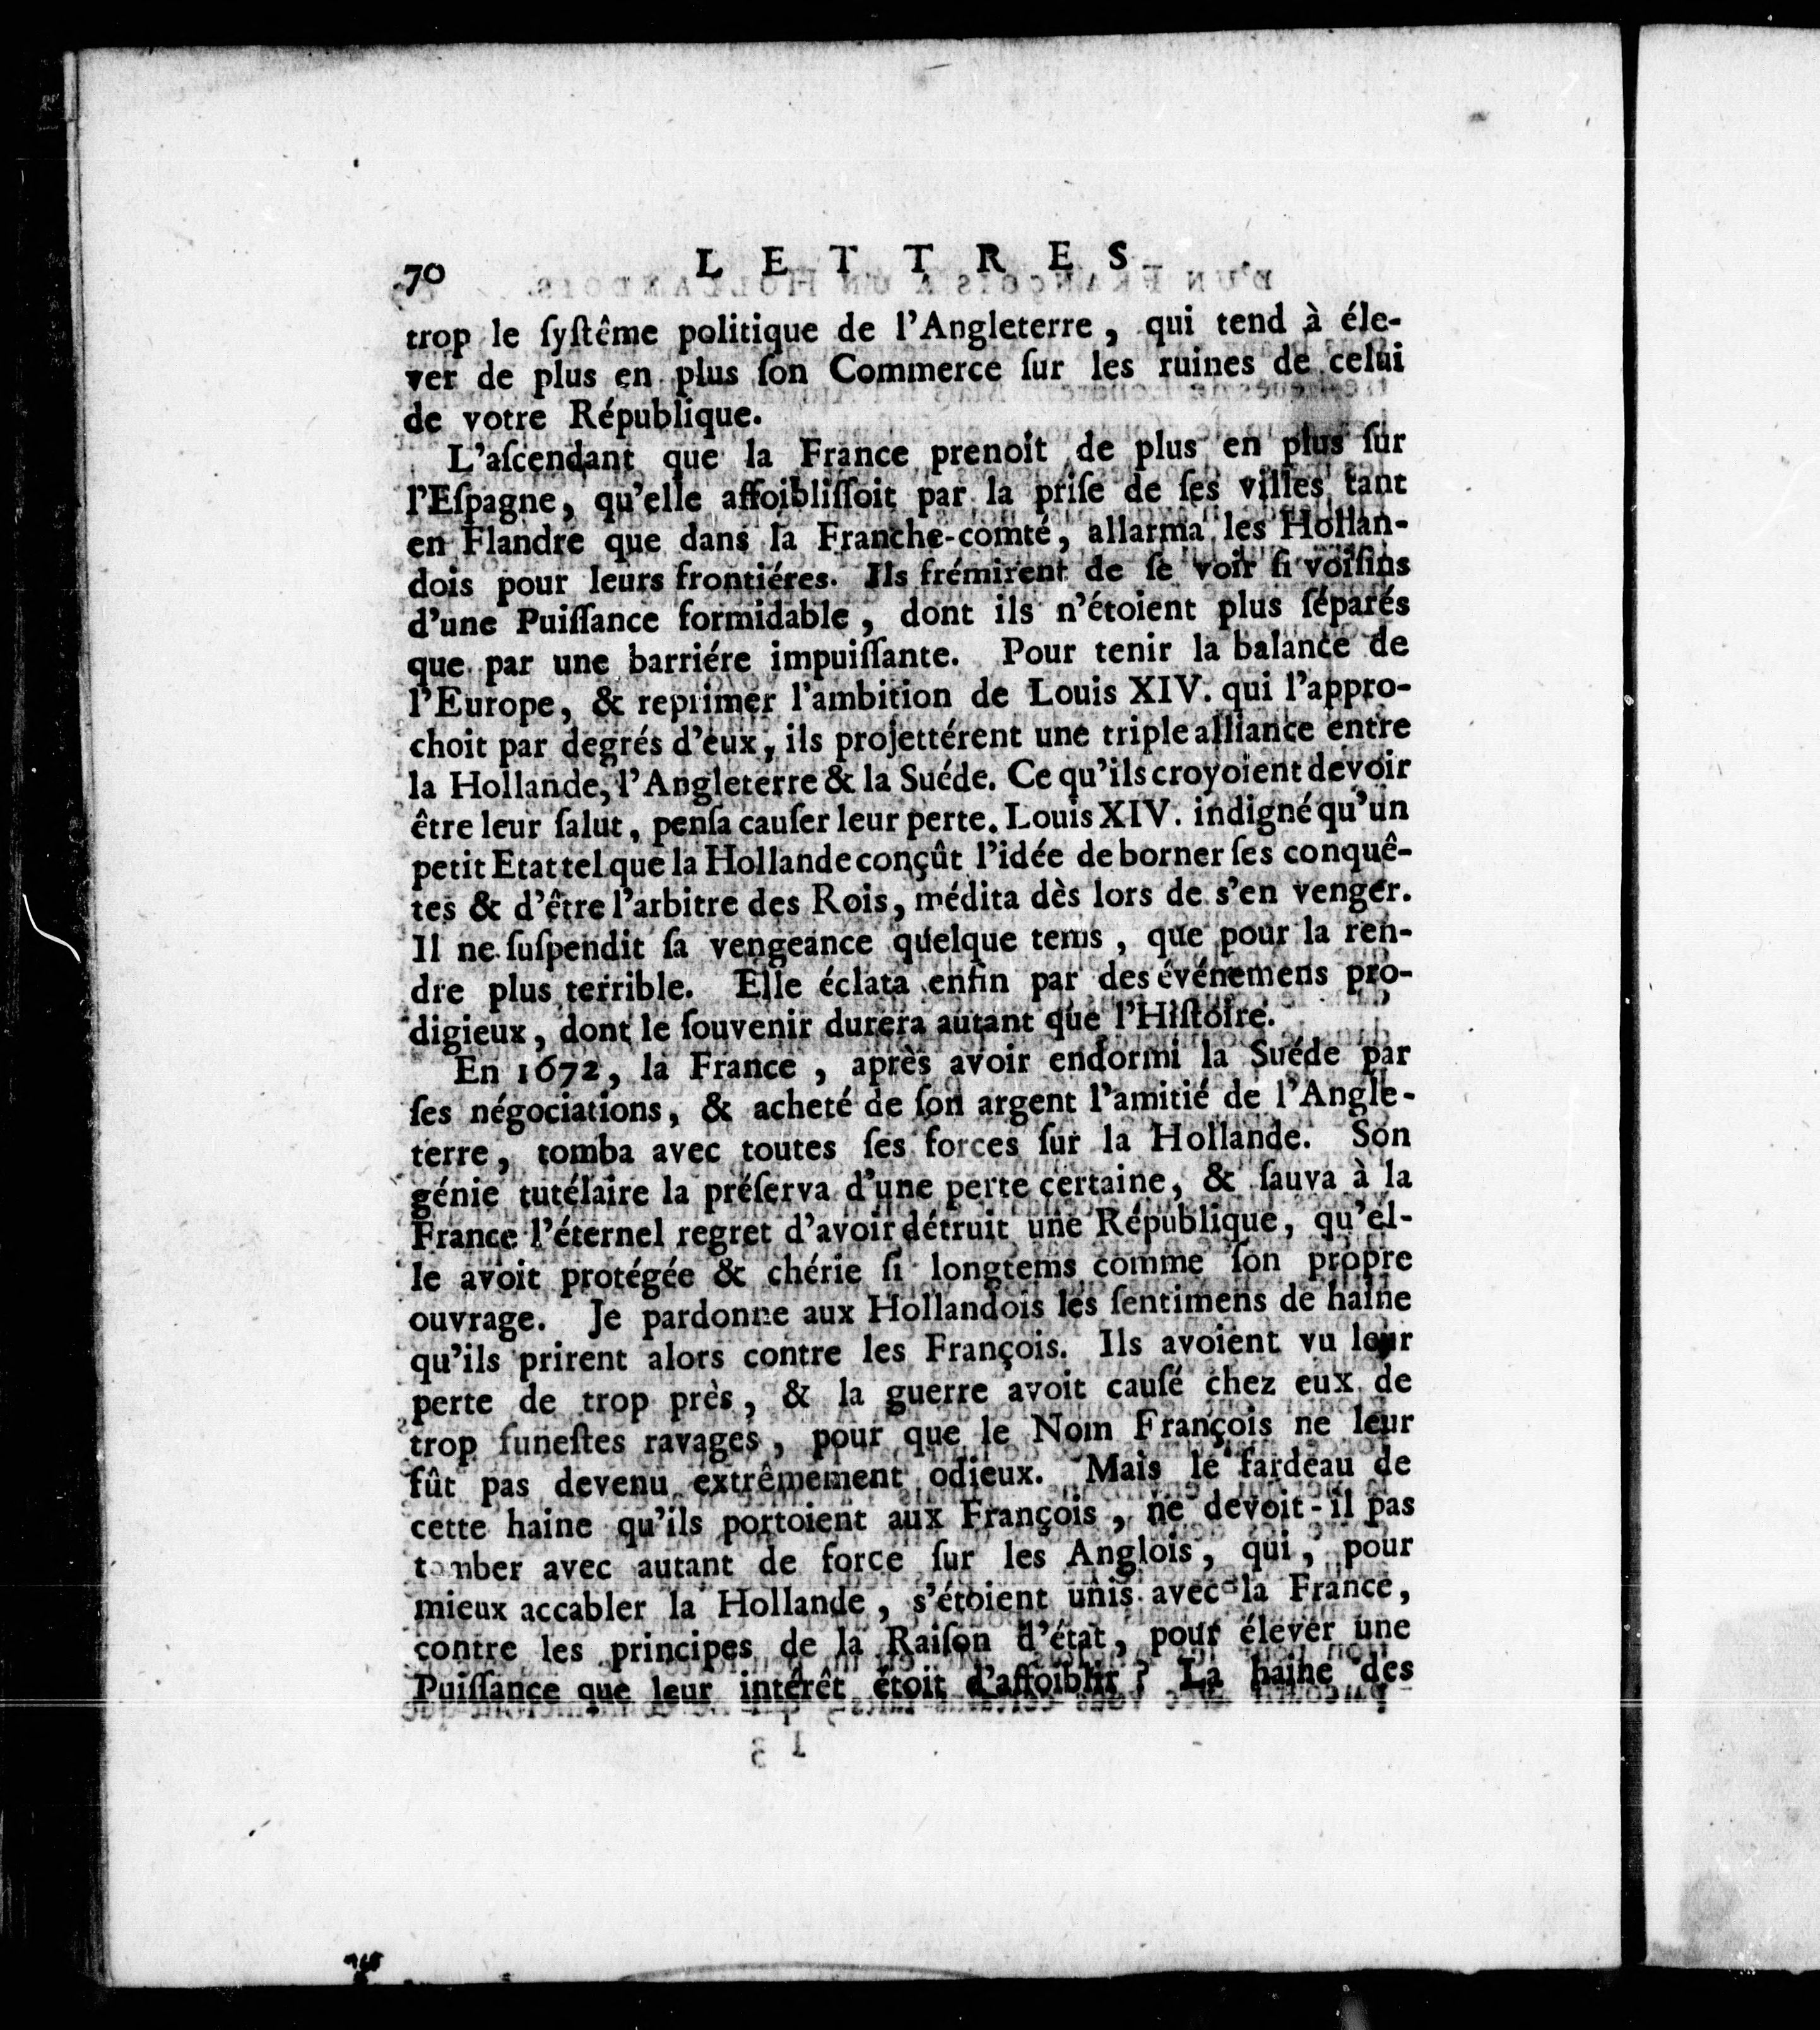 70 LETTRES
trop le ſyſtême politique de l'Angleterre, qui tend à éle-
ver de plus en plus ſon Commerce ſur les ruines de celui
de votre République.
L'aſcendant que la France prenoit de plus en plus ſur
l'Eſpagne, qu'elle affoibliſſoit par la priſe de ſes villes tant
en Flandre que dans la Franche-comté, allarma les Hollan-
dois pour leurs frontiéres. Ils frémirent de ſe voir ſi voiſins
d'une Puiſſance formidable, dont ils n'étoient plus ſéparés
que par une barriére impuiſſante. Pour tenir la balance de
l'Europe, & reprimer l'ambition de Louis XIV. qui l'appro-
choit par degrés d'eux, ils projettérent une triple alliance entre
la Hollande, l'Angleterre & la Suéde. Ce qu'ils croyoient devoir
être leur ſalut, penſa cauſer leur perte. Louis XIV. indigné qu'un
petit Etat tel que la Hollande conçût l'idée de borner ſes conquê-
tes & d'être l'arbitre des Rois, médita dès lors de s'en venger.
Il ne ſuſpendit ſa vengeance quelque tems, que pour la ren-
dre plus terrible. Elle éclata enfin par des événemens pro-
digieux, dont le ſouvenir durera autant que l'Hiſtoire.
En 1672, la France, après avoir endormi la Suéde par
ſes négociations, & acheté de ſon argent l'amitié de l'Angle-
terre, tomba avec toutes ſes forces ſur la Hollande. Son
génie tutélaire la préſerva d'une perte certaine, & ſauva à la
France l'éternel regret d'avoir détruit une République, qu'el-
le avoit protégée & chérie ſi longtems comme ſon propre
ouvrage. Je pardonne aux Hollandois les ſentimens de haine
qu'ils prirent alors contre les François. Ils avoient vu leur
perte de trop près, & la guerre avoit cauſé chez eux de
trop funeſtes ravages, pour que le Nom François ne leur
fût pas devenu extrêmement odieux. Mais le fardeau de
cette haine qu'ils portoient aux François, ne devoit-il pas
tomber avec autant de force ſur les Anglois, qui, pour
mieux accabler la Hollande, s'étoient unis avec la France,
contre les principes de la Raiſon d'état, pour élever une
Puiſſance que leur intérêt étoit d'affoiblir? La haine des